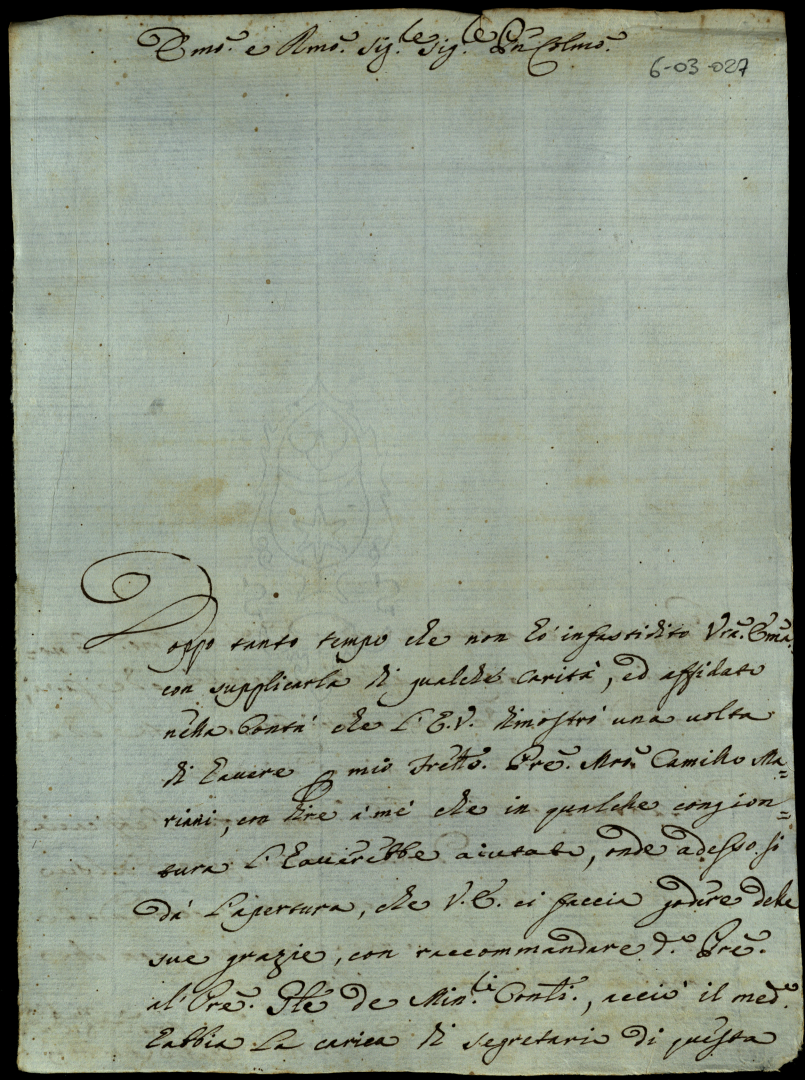 Emo. e Rmo. Sig.le Sig.le Pñ Colmo.
6-03-027
Doppo tanto tempo che non hò infastidito Vra. Ema.
con supplicarla di qualche carità, ed affidato
nella bontà che l'E.V. dimostrò una volta
di havere mio Frello. Pre. Mro. Camillo Ma=
riani, con dire à me che in qualche congion=
tura l'haverebbe aiutato, onde adesso si
dà l'apertura, che V.E. ci faccia godere delle
sue grazie, con raccommandare d.o Pre.
al Pre. Gle de Min.li Conli., acciò il med.o
habbia la carica di segretario di questa